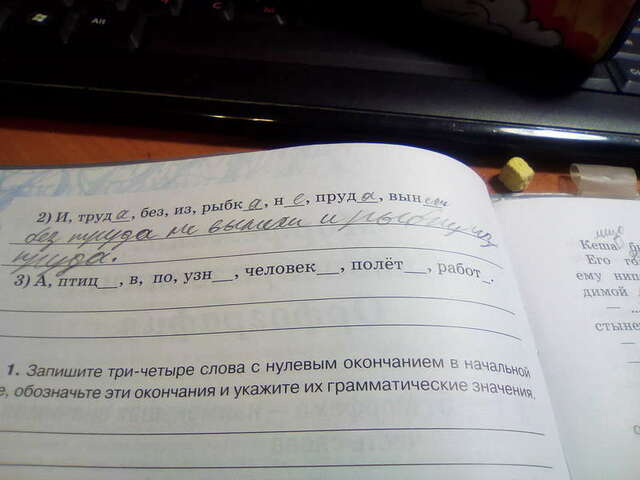 Alt
2) И, труд а, без, из, рыбк а, н е, пруд а, вын
без труда не
труда.
3) А, птиц__, в, по, узн__, человек__, полёт__, работ_.
1. Запишите три-четыре слова с нулевым окончанием в начальной
е, обозначьте эти окончания и укажите их грамматические значения.
Кеша
Его го
ему нип
димой
— ...
стыне
—